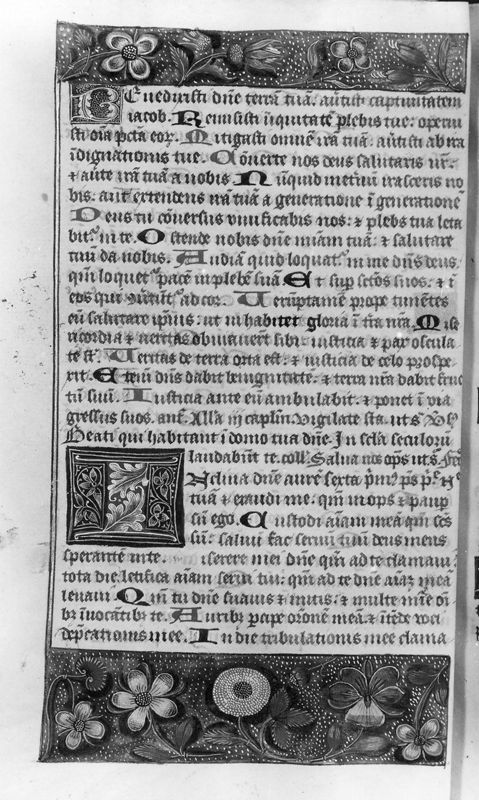 Benedixisti dñe terrã tuã. auertisti captiuitatem
iacob. Remisisti iniquitatẽ plebis tue. operui
sti oĩa pctã eoꝝ. Mitigasti omnẽ irã tuã. auertisti ab ira
ĩdignationis tue. Cõuerte nos deus salutaris nr̃.
⁊ auerte irã tuã a nobis Nũquid ineternũ irasceris no
bis. aut extendens irã tuã a generatione ĩ generationẽ
Deus tu cõuersus viuificabis nos. ⁊ plebs tua leta
bit᷑ in te. Ostende nobis dñe miam tuã. ⁊ salutare
tuũ da nobis. Audiã quid loquat᷑ in me dñs deus
qm̃ loquet᷑ pacẽ in plebẽ suã Et sup sctõs suos. ⁊ ĩ
eos qui ad cor. Verũptamen prope timẽtes
eũ salutare ipsius. ut inhabitet gloria ĩ tr̃a nr̃a. Mise
ricordia ⁊ veritas obuiauerũt sibi. iusticia ⁊ pax oscula
te st̃. Veritas de terra orta est. ⁊ iusticia de celo prospe
xit. Etenim dñs dabit benignitatẽ. ⁊ terra nr̃a dabit fruc
tũ suũ. Iusticia ante eũ ambulabit. ⁊ ponet ĩ via
gressus suos. añ. Alla in caplm̃. Vigilate
Beati qui habitant ĩ domo tua dñe. In scla seculorũ
laudabũt te. coll. Salua nos
Inclina dñe aurẽ
tuã ⁊ exaudi me. qm̃ inops ⁊ paup
sũ ego. Custodi aĩam meã qm̃ scs̃
sũ. saluũ fac seruũ tuũ deus meus
sperantẽ in te. Miserere mei dñe qm̃ ad te clamaui
tota die. letifica aĩam serui tui. qm̃ ad te dñe aĩaʒ meã
leuaui Qm̃ tu dñe suauis ⁊ mitis. ⁊ multe mĩe oĩ
bʒ ĩuocãtibʒ te. Auribʒ pcipe orõnẽ meã. ⁊ ĩtẽde voci
dep̃cationis mee. In die tribulationis mee clama